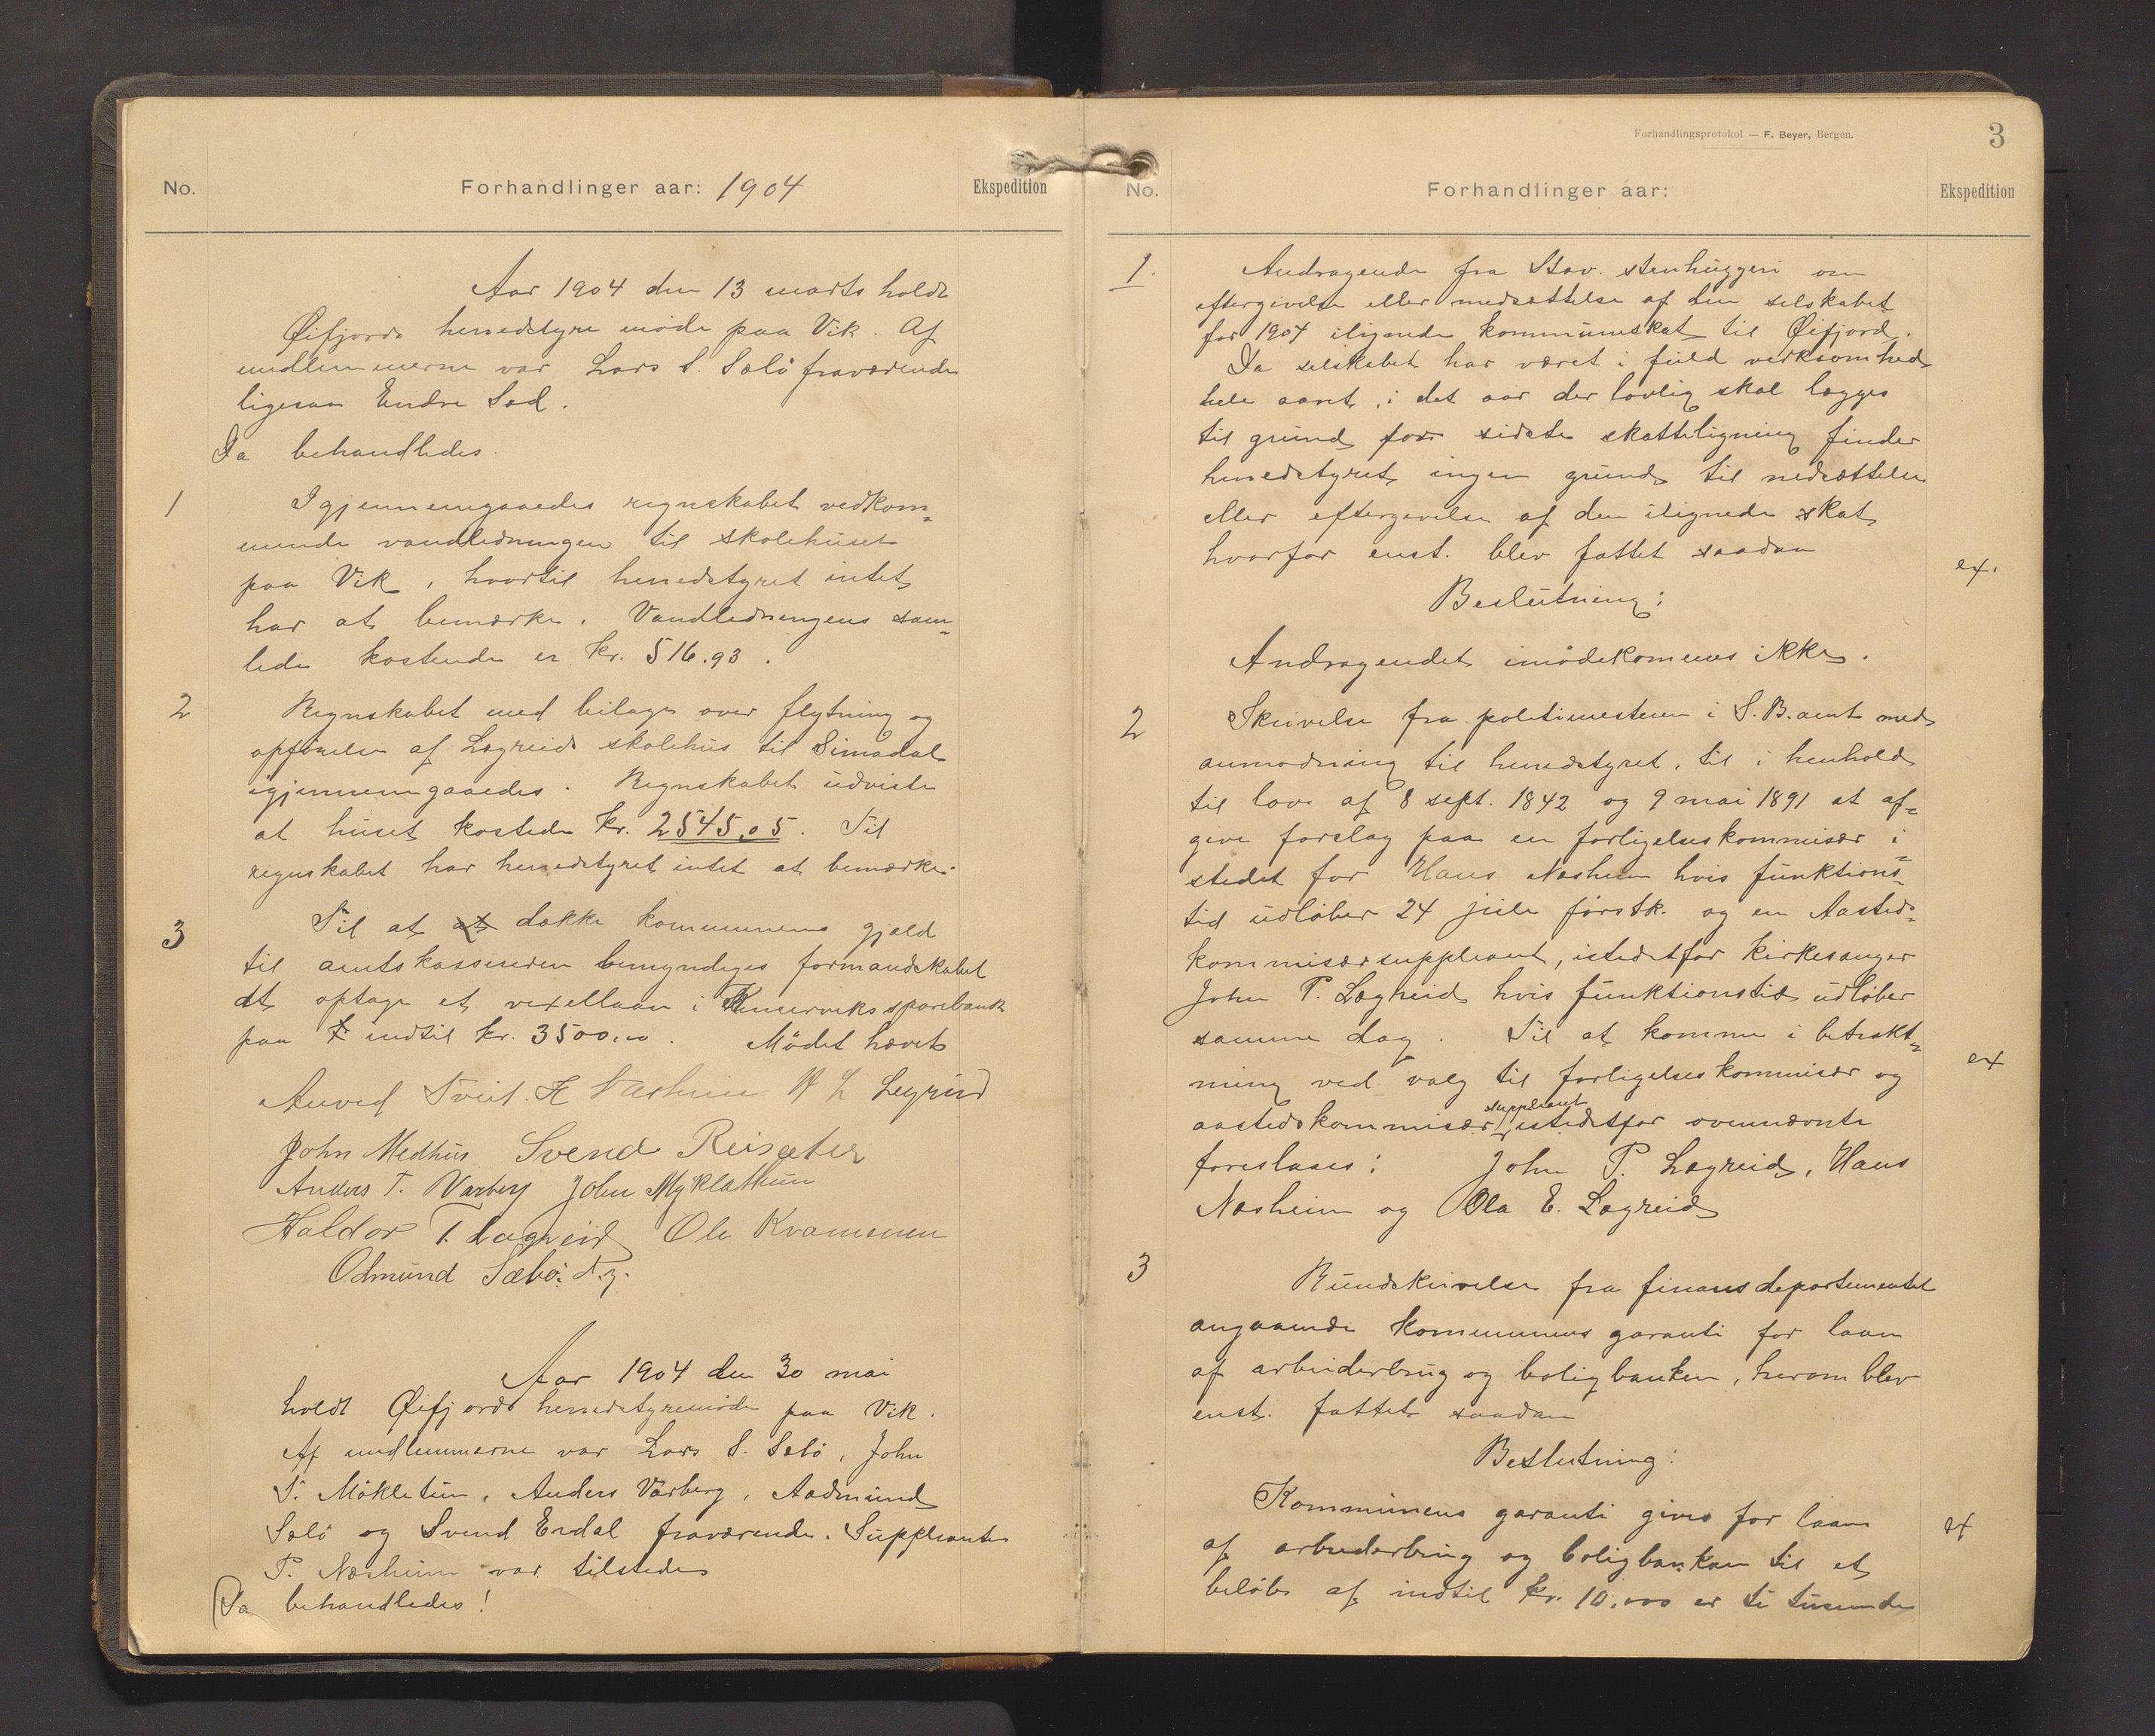 No. Forhandlinger aar: 1904 Ekspedition
Aar 1904 den 13 marts holdt
Øifjords herredstyre møde paa Vik. Af
medlemmerne var Lars S. Sæbö fraværende
ligesaa Endre Sæd.
Da behandledes.
1 Igjennemgaaedes regnskabet vedkom=
mende vandledningen til skolehuset
paa Vik, hvortil herredstyret intet
har at bemærke. Vandledningens sam=
lede kostende er kr. 516.93.
2 Regnskabet med bilage over flytning og
opførelse af Lægreids skolehus til Simadal
igjennemgaaedes. Regnskabet udviste
at huset kostede kr. 2545,05. Til
regnskabet har herredstyret intet at bemærke.
3 Til at at dække kommunens gjæld
til amtskassereren bemyndiges formandskabet
at optage et vexellaan i sparebank
paa indtil kr. 3500,00. Mødet hævet
Anved Tveit. H Næsheim H L Legreid
John Medhus Svend Reisæter
Anders T. Varberg John Myklathun
Haldor T. Lægreid Ole Kvamsmen
Odmund Sæbö.
Aar 1904 den 30 mai
holdt Øifjords herredstyremøde paa Vik.
Af medlemmerne var Lars S. Sæbö, John
S. Mökletun, Anders Varberg, Aadmund
Sæbö og Svend Erdal fraværende. Suppleant
P. Næsheim var tilstede
Da behandledes!
Forhandlingsprotokol — F. Beyer, Bergen.
3
No. Forhandlinger aar: Ekspedition
1. Andragende fra Stav. stenhuggeri om
eftergivelse eller nedsættelse af den selskabet
for 1904 ilignede kommuneskat til Øifjord.
Da selskabet har været i fuld virksomhed
hele aaret, i det aar der lovlig skal lægges
til grund for sidste skatteligning finder
herredstyret ingen grund til nedsættelse
eller eftergivelse af den ilignede skat,
hvorfor enst. blev fattet saadan
ex.
Beslutning:
Andragendet imødekommes ikke.
2 Skrivelse fra politimesteren i S. B. amt med
anmodning til herredstyret, til i henhold
til lov af 8 sept. 1842 og 9 mai 1891 at af=
give forslag paa en forligelseskommisær i
stedet for Hans Næsheim hvis funktions=
tid udløber 24 juli førstk. og en Aasteds=
kommisærsuppleant, istedetfor kirkesanger
John P. Lægreid hvis funktionstid udløber
samme dag. Til at komme i betrakt=
ex
ning ved valg til forligelseskommisær og
aastedskommisær suppleant istedetfor ovennævnte
foreslaaes: John P. Lægreid, Hans
Næsheim og Ola E. Lægreid
3 Rundskrivelse fra finansdepartementet
angaaende kommunens garanti for laan
af arbeiderbrug og boligbanken, herom blev
enst. fattet saadan
Beslutning:
Kommunens garanti gives for laan
ex
af arbeiderbrug og boligbanken til et
beløb af indtil kr. 10.000 er ti tusende